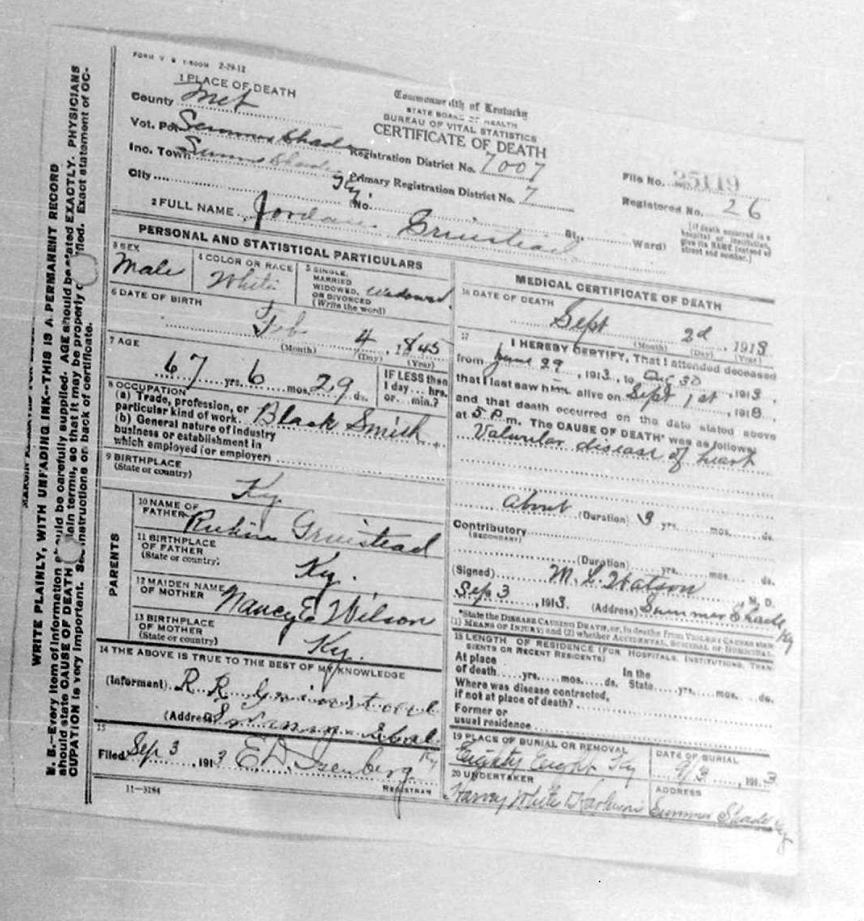 FORM V. S. 1-500M 2-29-12
1 PLACE OF DEATH
County Met
Vot. Pct Summer Shade
Inc. Town Summer Shade
City Ky. No. St., Ward)
Commonwealth of Kentucky
STATE BOARD OF HEALTH
BUREAU OF VITAL STATISTICS
CERTIFICATE OF DEATH
Registration District No. 7007
Primary Registration District No. 7
File No. 25119
Registered No. 26
(If death occurred in a
hospital or institution,
give its NAME instead of
street and number.)
2 FULL NAME Jordan Grinstead
PERSONAL AND STATISTICAL PARTICULARS
3 SEX
Male
4 COLOR OR RACE
White
5 SINGLE,
MARRIED
WIDOWED,
OR DIVORCED
(Write the word)
widowed
6 DATE OF BIRTH
Feb 4, 1845
(Month) (Day) (Year)
7 AGE
67 yrs. 6 mos. 29 ds.
IF LESS than
1 day... hrs.
or... min.?
8 OCCUPATION
(a) Trade, profession, or
particular kind of work Black Smith
(b) General nature of industry
business or establishment in
which employed (or employer)
9 BIRTHPLACE
(State or country)
Ky.
PARENTS
10 NAME OF
FATHER
Grinstead
11 BIRTHPLACE
OF FATHER
(State or country)
Ky.
12 MAIDEN NAME
OF MOTHER Nancy E Wilson
13 BIRTHPLACE
OF MOTHER
(State or country)
Ky.
14 THE ABOVE IS TRUE TO THE BEST OF MY KNOWLEDGE
(Informant) R. R. Grinstead
(Address)
Ky
15
Filed Sep 3, 1913 E D Isenberg
REGISTRAR
11-3184
MEDICAL CERTIFICATE OF DEATH
16 DATE OF DEATH
Sept 2d, 1913
(Month) (Day) (Year)
17 I HEREBY CERTIFY, That I attended deceased
from June 29, 1913, to Aug 30, 1913,
that I last saw him alive on Sept 1st, 1913,
and that death occurred on the date stated above
at 5 P.m. The CAUSE OF DEATH* was as follows:
Valvular disease of heart
about (Duration) 3 yrs. mos. ds.
Contributory
(SECONDARY)
(Duration) yrs. mos. ds.
(Signed) M. L. Watson M. D.
Sep 3, 1913 (Address) Summer Shade Ky
*State the DISEASE CAUSING DEATH, or, in deaths from VIOLENT CAUSES state
(1) MEANS OF INJURY; and (2) whether ACCIDENTAL, SUICIDAL or HOMICIDAL.
18 LENGTH OF RESIDENCE (FOR HOSPITALS, INSTITUTIONS, TRANSIENTS OR RECENT RESIDENTS)
At place In the
of death yrs. mos. ds. State yrs. mos. ds.
Where was disease contracted,
if not at place of death?
Former or
usual residence
19 PLACE OF BURIAL OR REMOVAL
Eighty Eight Ky
DATE OF BURIAL
9/3, 1913
20 UNDERTAKER
Harvey White
ADDRESS
Summer Shade Ky
WRITE PLAINLY, WITH UNFADING INK--THIS IS A PERMANENT RECORD
N. B.--Every item of information should be carefully supplied. AGE should be stated EXACTLY. PHYSICIANS
should state CAUSE OF DEATH in plain terms, so that it may be properly classified. Exact statement of OC-
CUPATION is very important. See instructions on back of certificate.